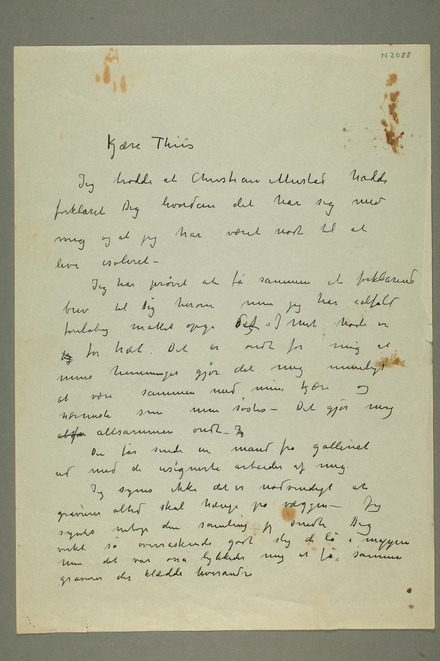 N 2088
Kjære Thiis
Jeg trodde at Christian Mustad hadde
forklaret Dig hvordan det har sig med
mig og at jeg har været nødt til at
leve isoleret –
Jeg har prøvet at få sammen et forklarende
brev til Dig herom men jeg har ialfald
foreløbig måttet opgi det
for hæl. Det er ondt for mig at
mine hemninger gjør det mig umuligt
at være sammen med mine kjære og
nærmeste som min søster – Det gjør mig
altsammen ondt –
Du får sende en mand fra galleriet
ud med de usignerte arbeider af mig.
Jeg synes ikke det er nødvendigt at
gravurer altid skal hænge på væggen – Jeg
synes netop den samling jeg sendte Dig
virket så overraskende godt slig de lå i mappen
men det var også lykkedes mig at få sammen
gravurer der klædde hverandre